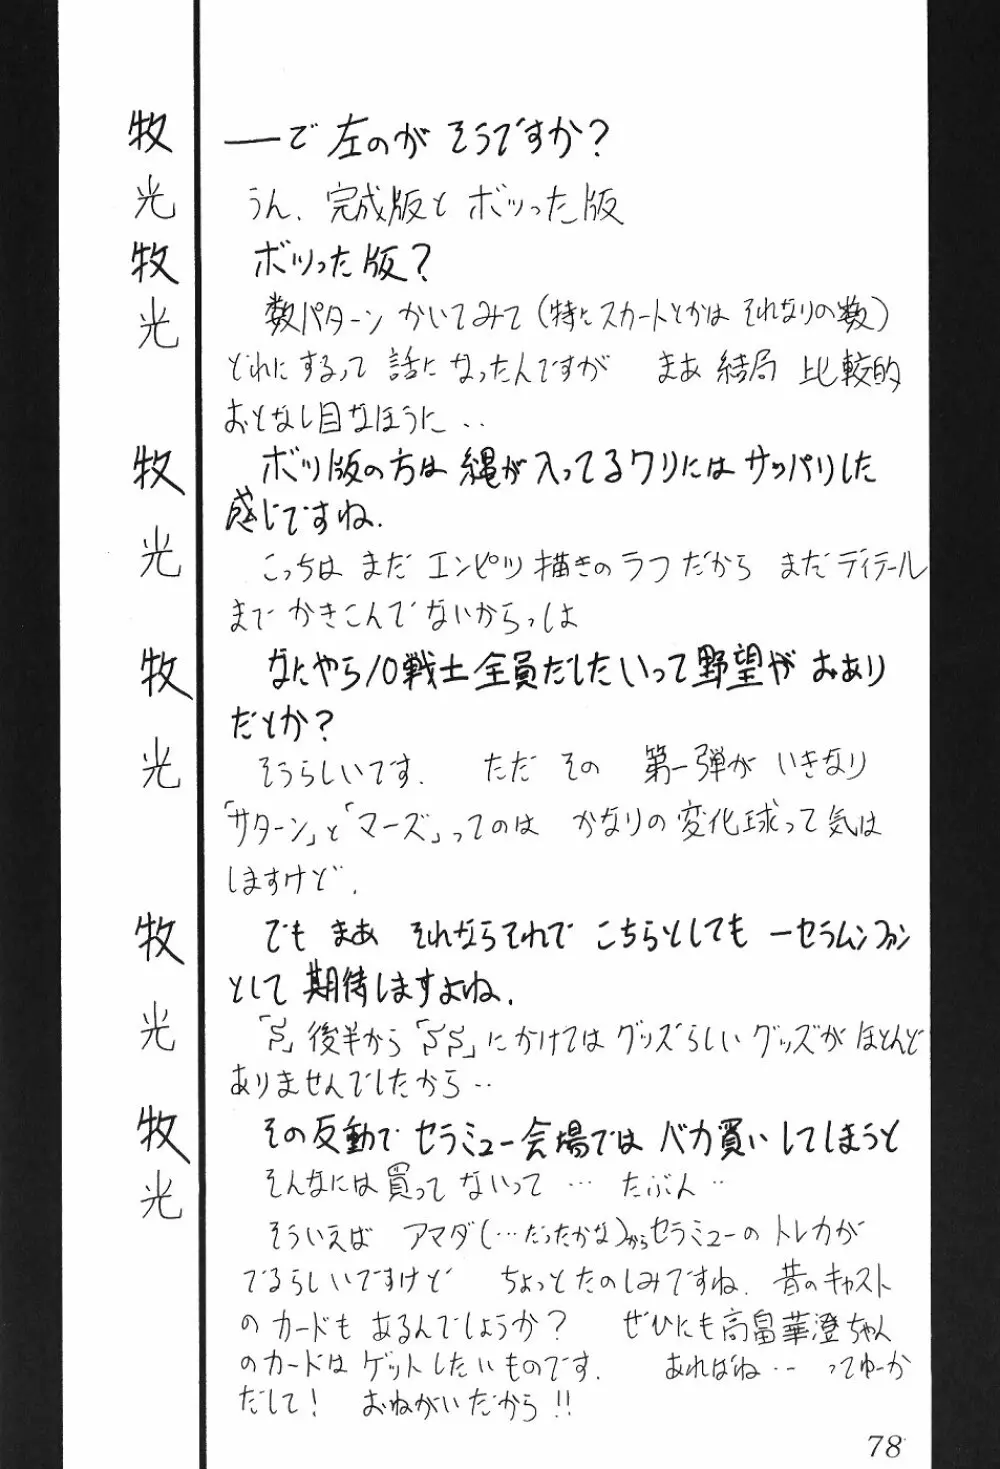 牧 ―で 左のが そうですか?
光 うん. 完成版と ボツった版
牧 ボツった版?
光 数パターン かいてみて(特にスカートとかは それなりの数)
どれにするって 話になったんですが まあ 結局 比較的
おとなし目なほうに‥
牧 ボツ版の方は 縄が入ってるワリにはサッパリした
感じですね.
光 こっちは まだ エンピツ描きのラフだから まだディテール
まで かきこんでないからっしょ
牧 なにやら10戦士全員だしたいって野望が おあり
だとか?
光 そうらしいです. ただ その 第一弾が いきなり
「サターン」と「マーズ」ってのは かなりの変化球って気は
しますけど.
牧 でも まあ それならそれで こちらとしても 一セラムンファン
として 期待しますよね.
光 「S」後半から「SS」にかけては グッズらしい グッズが ほとんど
ありませんでしたから‥
牧 その反動で セラミュー会場では バカ買い してしまうと
光 そんなには買って ないって … たぶん‥
そういえば アマダ(…だったかな)からセラミューの トレカが
でるらしいですけど ちょっとたのしみですね. 昔のキャスト
の カードも あるんでしょうか? ぜひにも高畠華澄ちゃん
のカードは ゲットしたいものです. あればね… ってゆーか
だして! おねがいだから!!
78